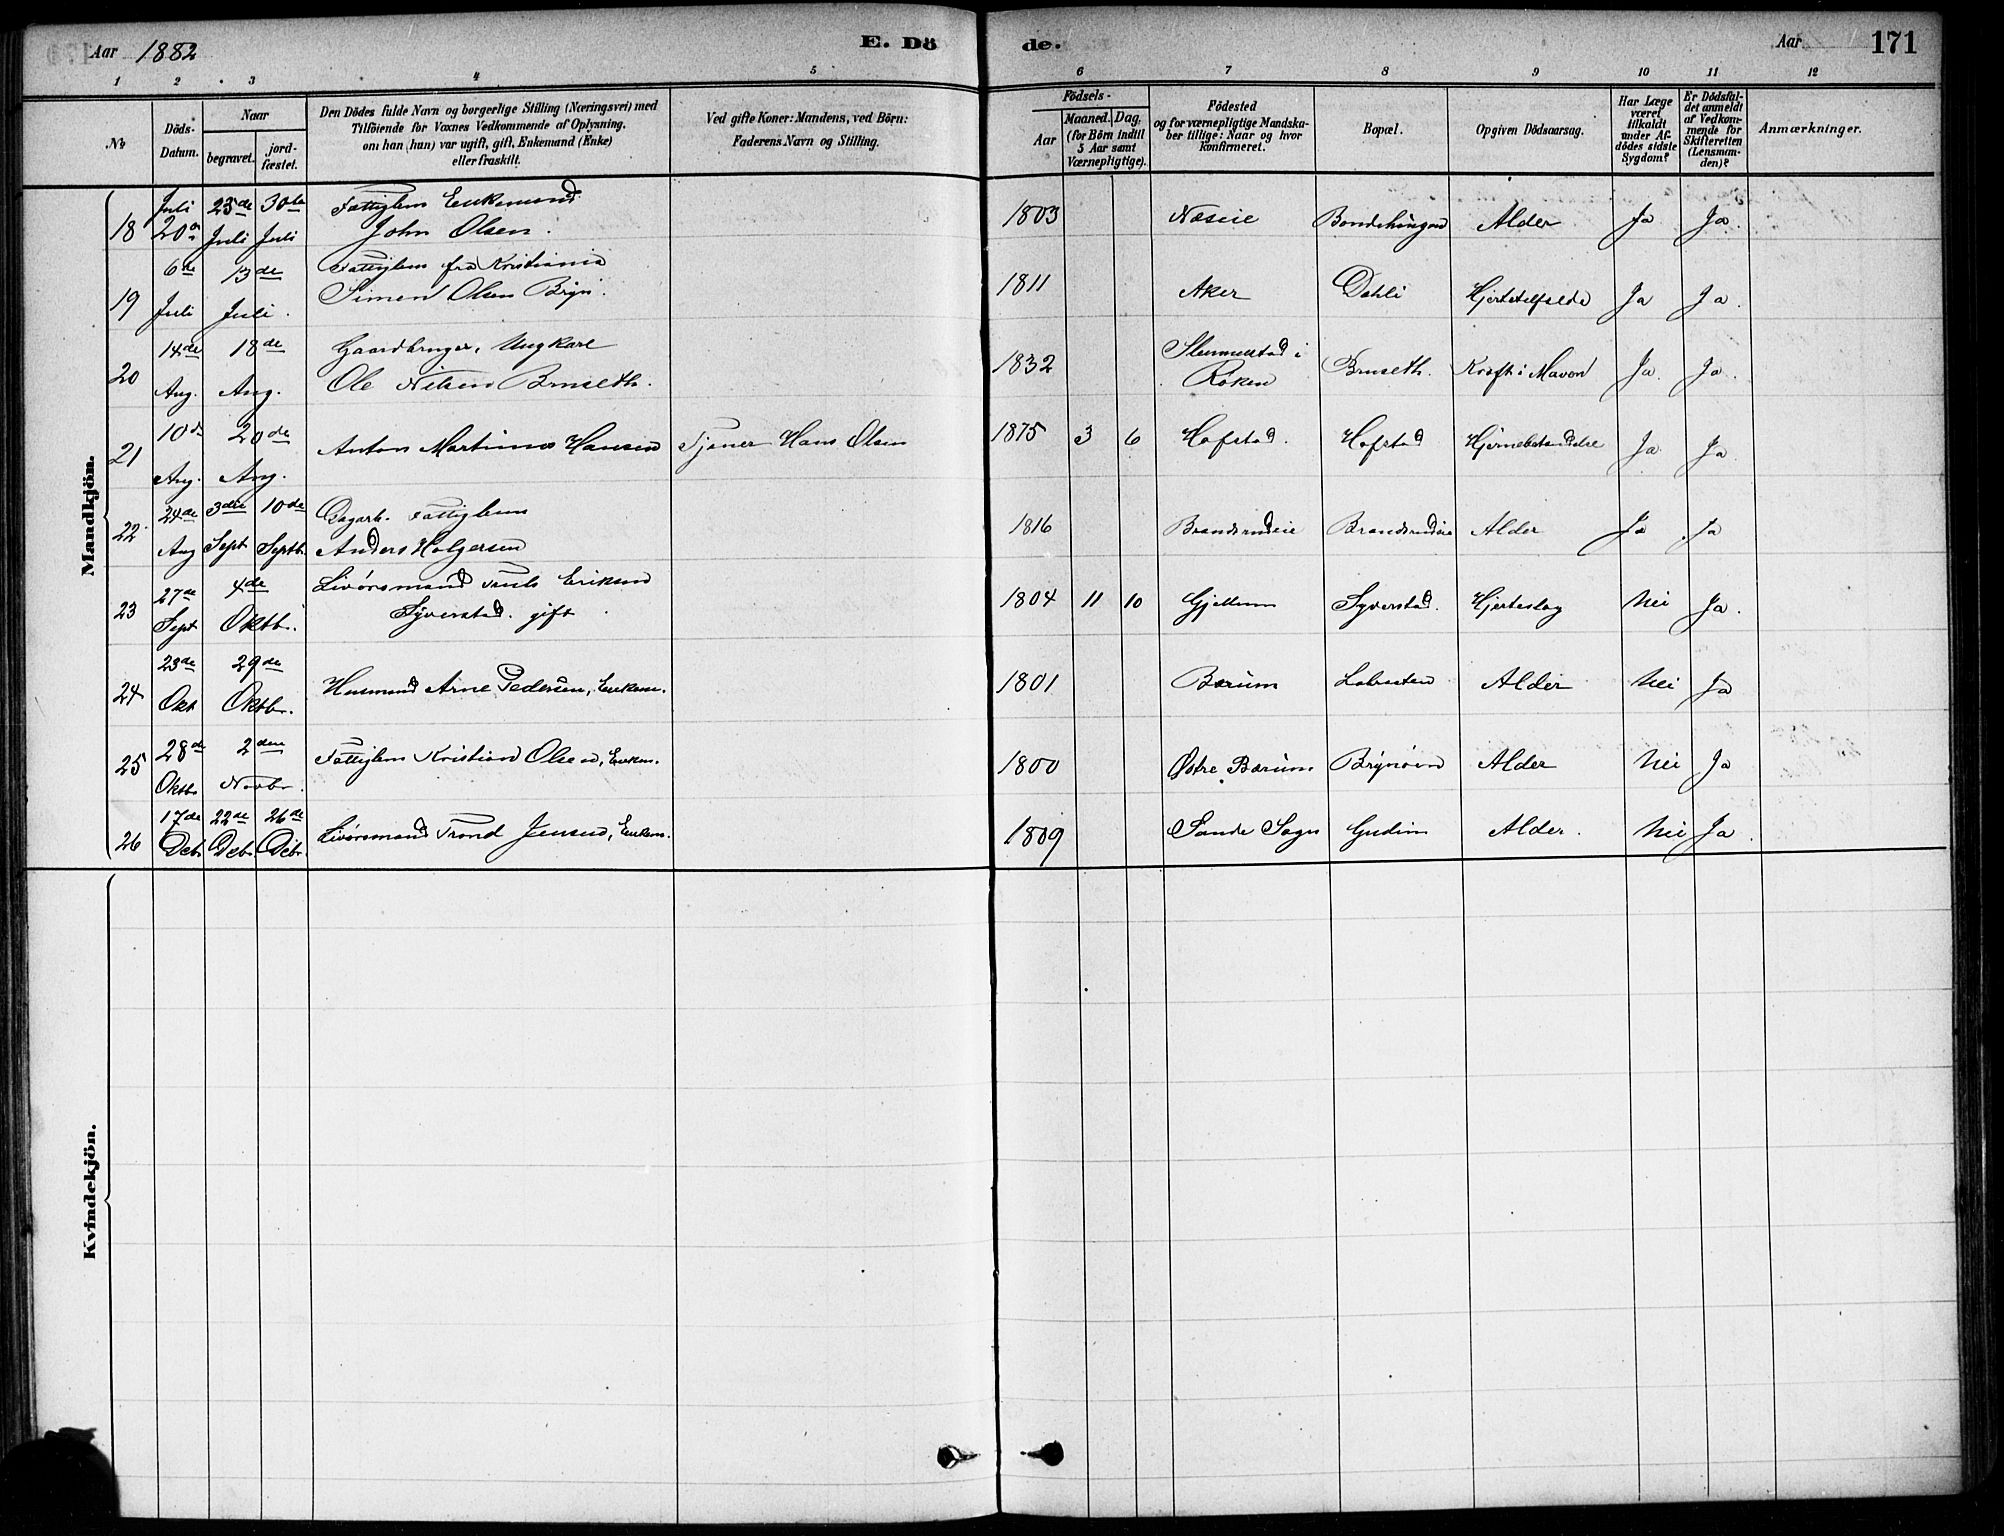 Aar 1882
E. Dö
de.
Aar
171
1 2 3 4 5 6 7 8 9 10 11 12
No
Döds-Datum.
Naar
begravet.
jord-fæstet.
Den Dödes fulde Navn og borgerlige Stilling (Næringsvei) med
Tilföiende for Voxnes Vedkommende af Oplysning,
om han (hun) var ugift, gift, Enkemand (Enke)
eller fraskilt.
Ved gifte Koner: Mandens, ved Börn:
Faderens Navn og Stilling.
Födsels-
Aar
Maaned. Dag.
(for Börn indtil
5 Aar samt
Værnepligtige).
Födested
og for værnepligtige Mandska-
ber tillige: Naar og hvor
konfirmeret.
Bopæl.
Opgiven Dödsaarsag.
Har Læge
været
tilkaldt
under Af-
dödes sidste
Sygdom?
Er Dödsfal-
det anmeldt
af Vedkom-
mende for
Skifteretten
(Lensman-
den)?
Anmærkninger.
Mandkjön.
Juli 23de 30te Fattiglem Enkemand
18 20de Juli Juli John Olsen. 1803 Næseie Alder Ja Ja
6de 13de Fattiglem fra Kristiania
19 Juli Juli. Simen Olsen Bryn. 1811 Aker Dahli Ja Ja.
14de 18de Gaardbruger, Ungkarl
20 Aug. Aug. Ole Nilsen Bruseth. 1832 Røken Bruseth. Kræft i Maven Ja. Ja.
10de 20de
21 Aug. Aug. Anton Martinus Hansen Tjener Hans Olsen 1875 3 6 Hofstad. Hofstad Ja Ja
24de 3die 10de Fattiglem
22 Aug Sept Septb. Anders Holgersen 1816 Brandsrudeie Brandsrudeie Alder Ja Ja
27de 4de Livörsmand Truls Eriksen
23 Sept Oktb. Syverstad. gift 1804 11 10 Gjellum Syverstad. Hjerteslag Nei Ja.
23de 29de
24 Okt Oktb. Husmand Arne Pedersen, Enkem. 1801 Bærum Alder Nei Ja
28de 2den
25 Oktb Novbr. Fattiglem Kristian Olsen, Enkem. 1800 Østre Bærum Brynöen Alder Nei Ja
17de 22de 26de
26 Deb. Deb. Deb. Livörsmand Trond Jensen, Enkem. 1809 Sande Sogn Gudim Alder. Nei Ja.
Kvindekjön.